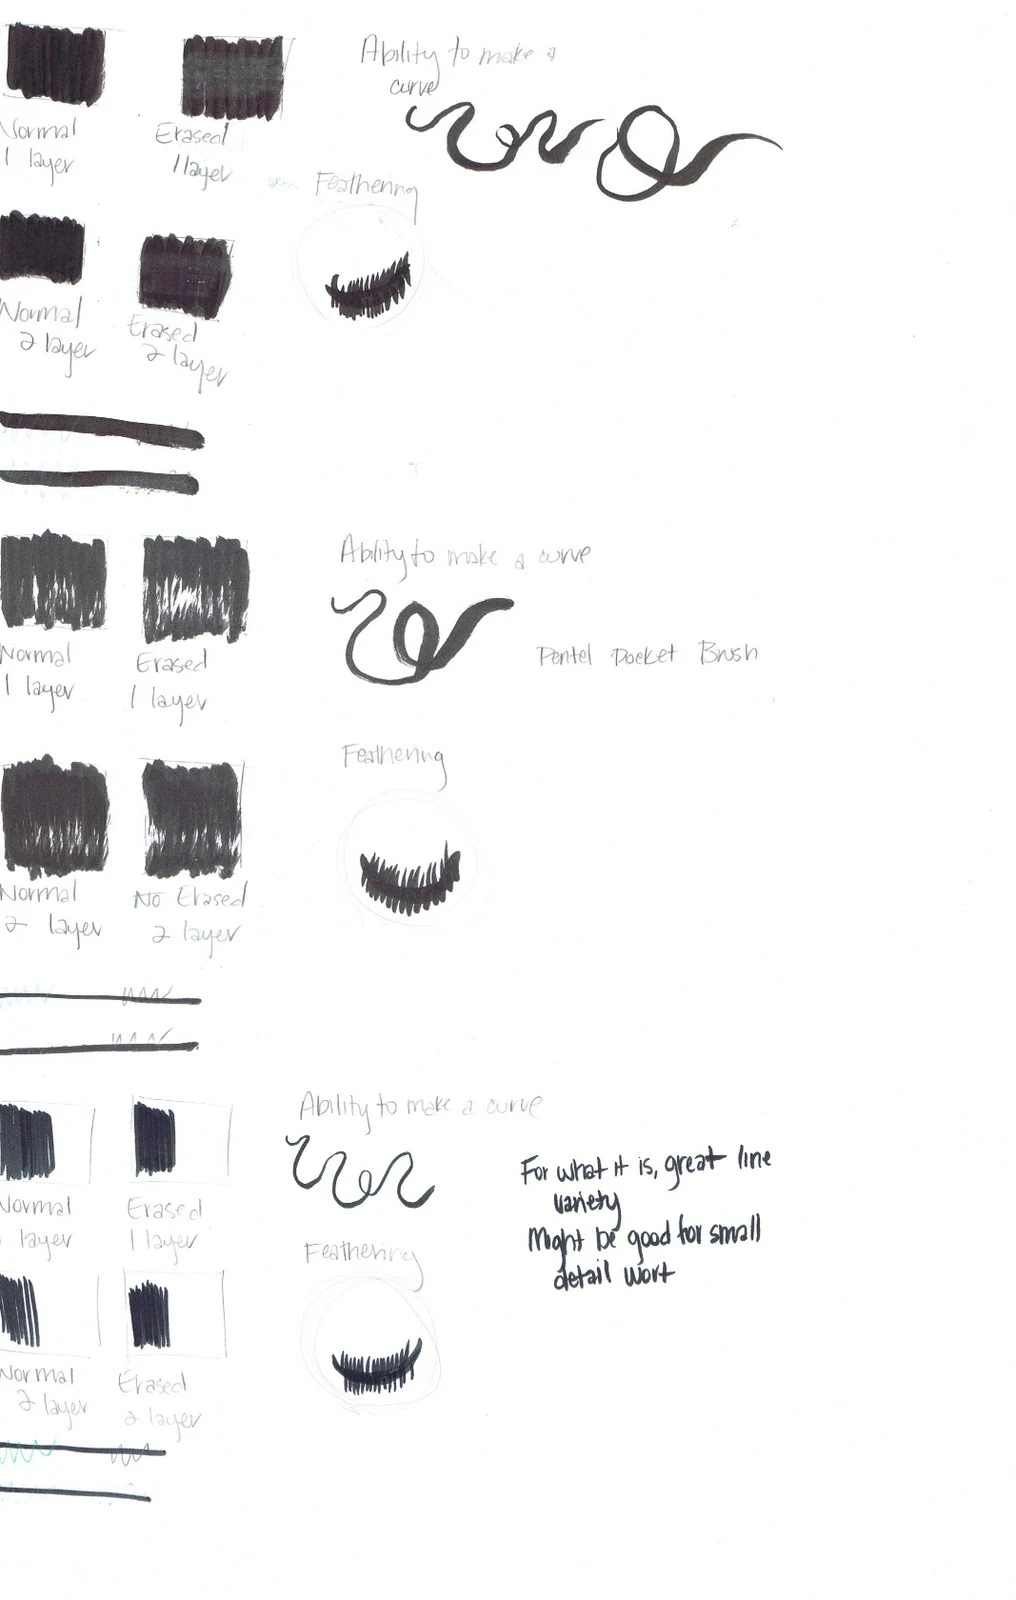 Ability to make a
curve
Normal
1 layer
Erased
1 layer
Feathering
Normal
2 layer
Erased
2 layer
Ability to make a curve
Normal
1 layer
Erased
1 layer
Pentel Pocket Brush
Feathering
Normal
2 layer
No Erased
2 layer
Ability to make a curve
Normal
layer
Erased
1 layer
For what it is, great line
variety
Might be good for small
detail work
Feathering
Normal
2 layer
Erased
2 layer